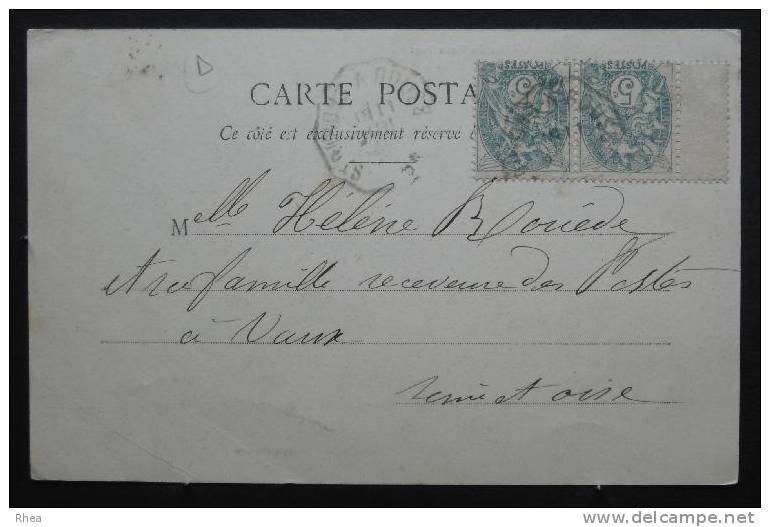 CARTE POSTA
Ce côté est exclusivement réservé
POSTES POSTES
5c 5c
D
Melle Hélène Rouède
et sa famille receveuse des Postes
à Vaux
Seine et oise
Rhea
delcampe.net